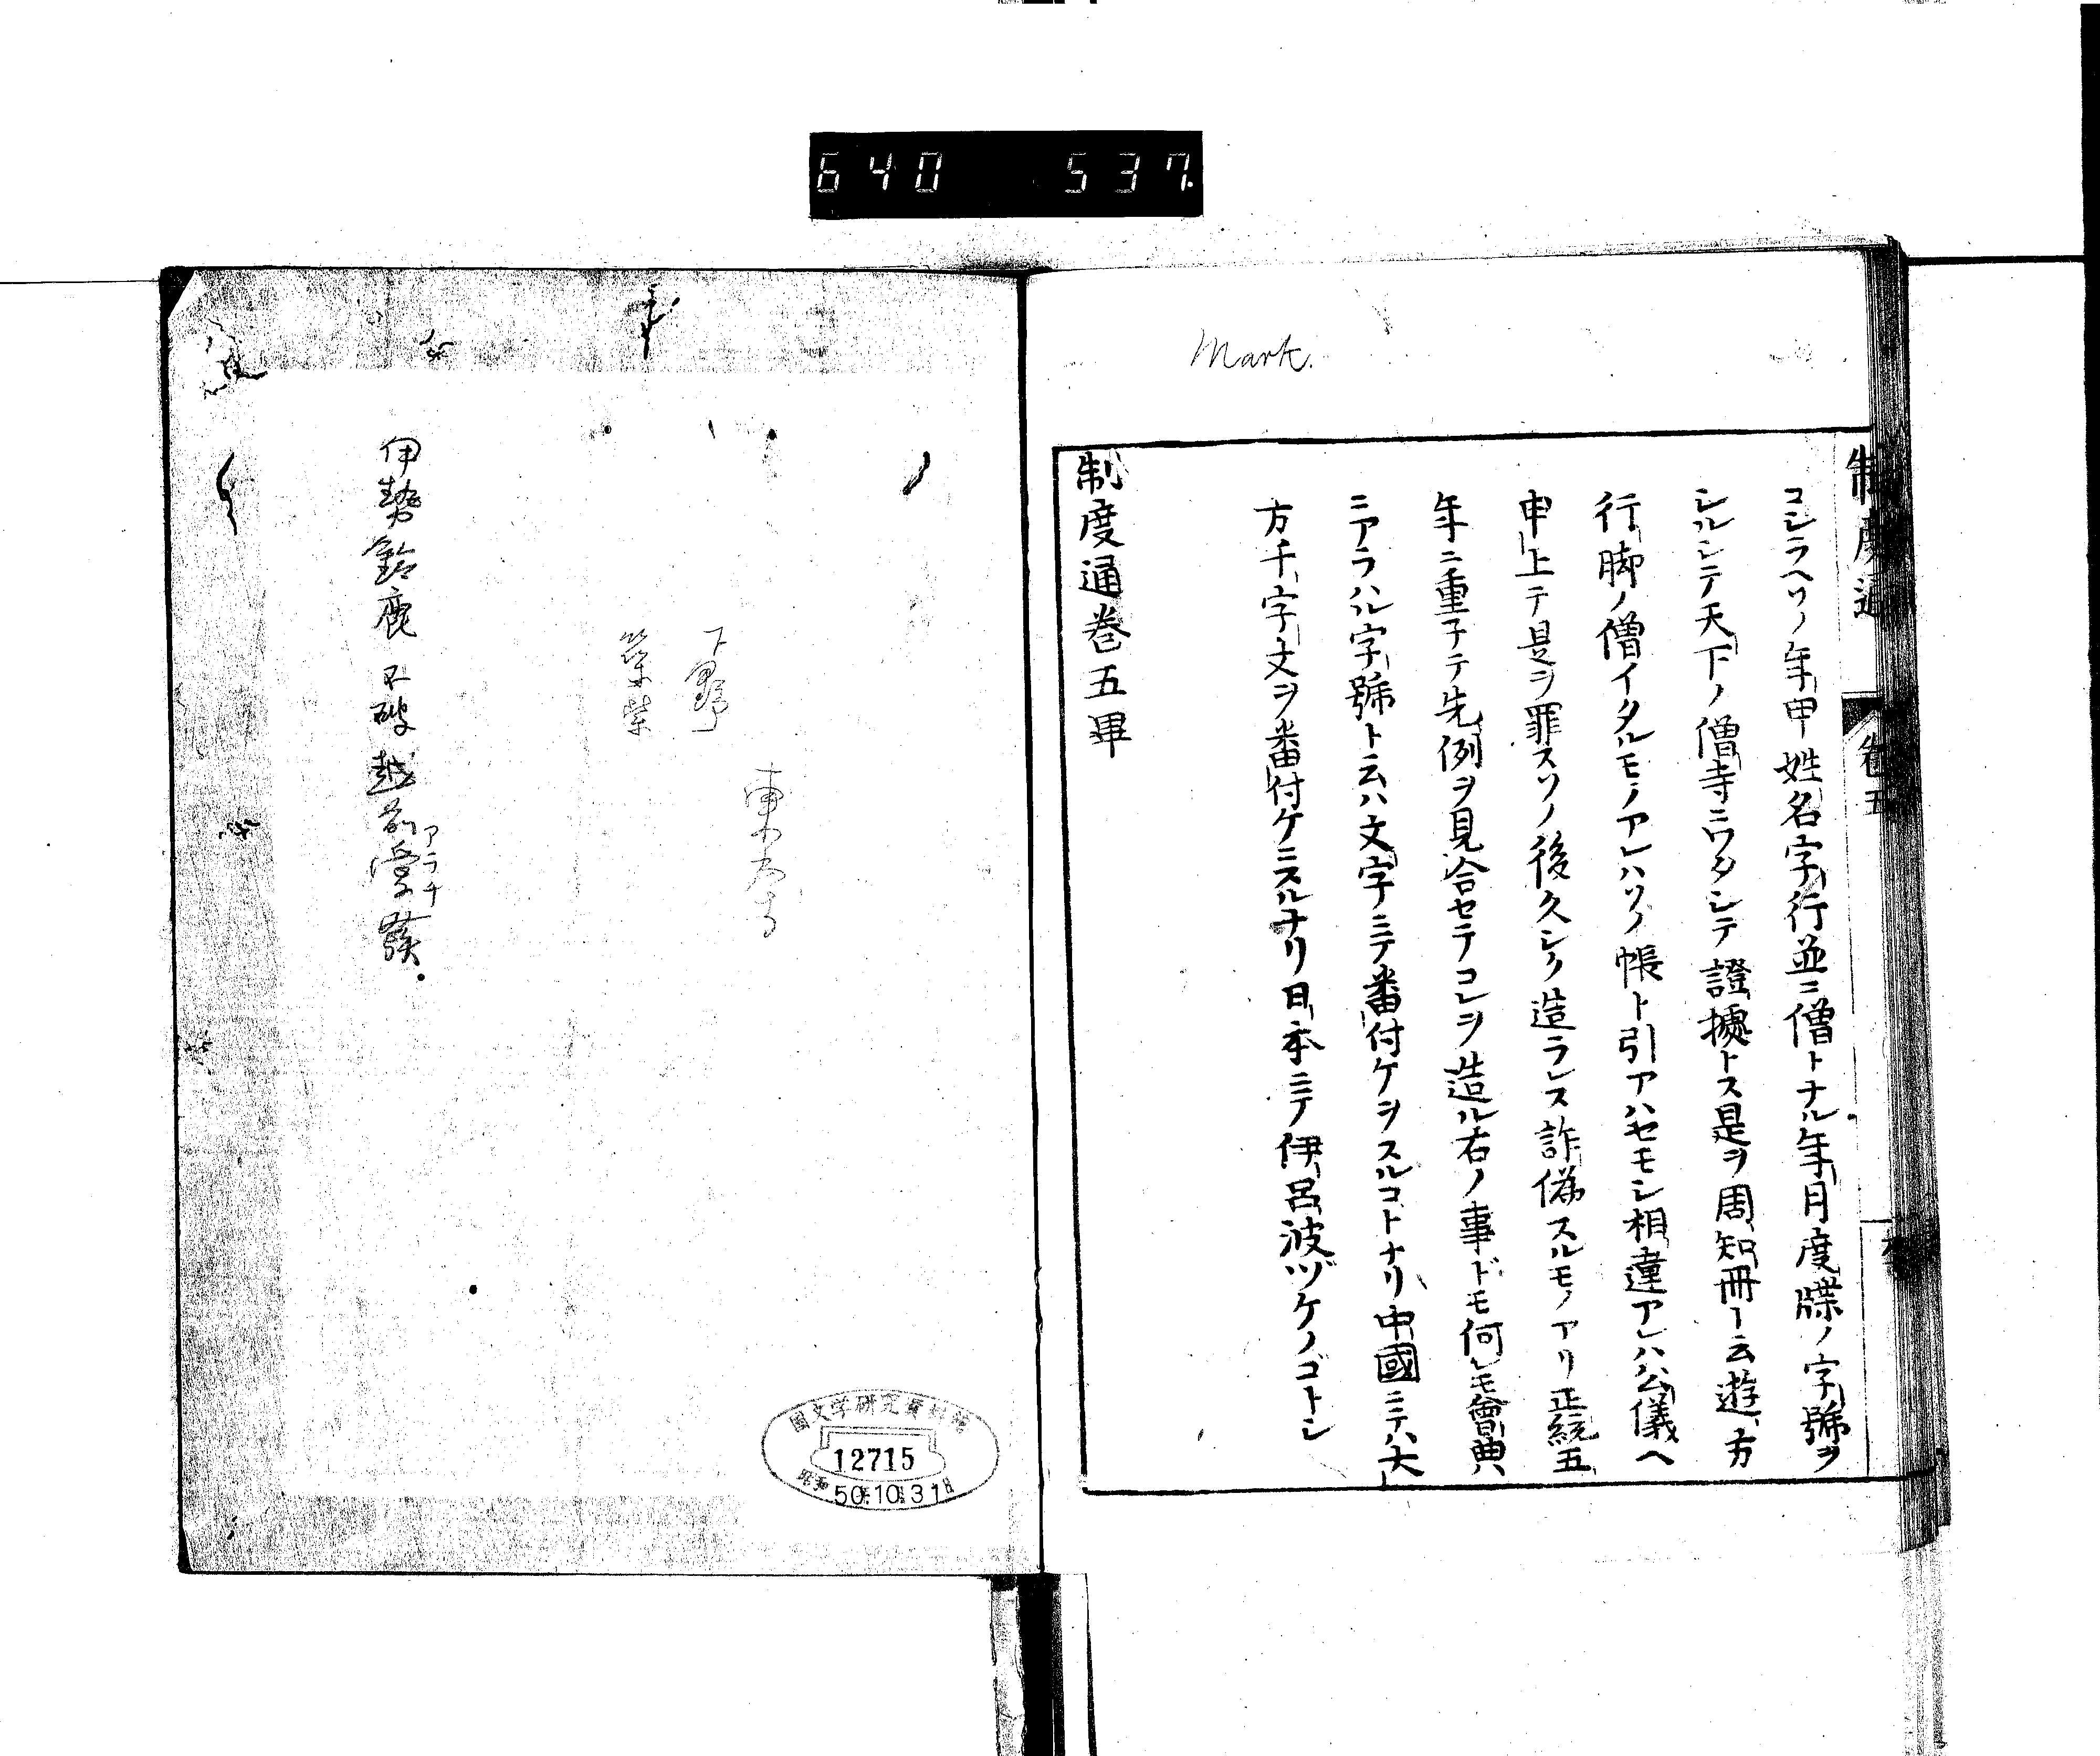 640 537.
Mark.
制度通 卷五
コシラヘソノ年甲姓名字行並ニ僧トナル年月度牒ノ字號ヲ
シルシテ天下ノ僧寺ニワタシテ證據トス是ヲ周知冊ト云遊方
行脚ノ僧イタルモノアレハソノ帳ト引アハセモシ相違アレハ公儀ヘ
申上テ是ヲ罪スソノ後久シク造ラレス詐偽スルモノアリ正統五
年ニ重子テ先例ヲ見合セテコレヲ造ル右ノ事ドモ何レモ會典
ニアラハル字號ト云ハ文字ニテ番付ケヲスルコトナリ中國ニテハ大
方千字文ヲ番付ケニスルナリ日本ニテ伊呂波ヅケノゴトシ
制度通卷五畢
東大寺
下野
筑紫
伊勢鈴鹿 不破 越前愛發
アラチ
國文学研究資料館
12715
昭和50.10.31日